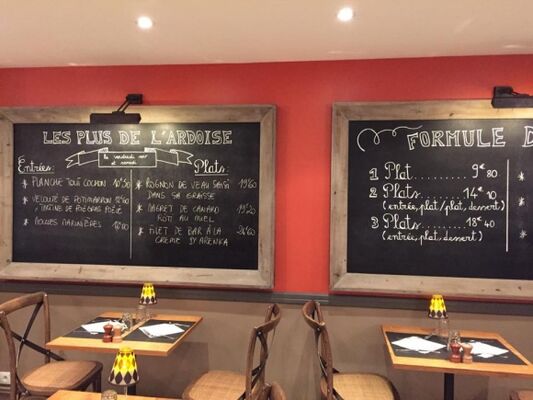 LES PLUS DE L'ARDOISE
le vendredi soir
et samedi
Entrées:
* PLANCHE TOUT COCHON 10€50
* VELOUTÉ DE POTIMARRON
* MOULES MARINIÈRES
Plats:
* ROGNON DE VEAU
DANS SA GRAISSE
* MAGRET DE CANARD
RÔTI AU MIEL
* FILET DE BAR À LA
CRÈME D'ARENKA
FORMULE D
1 Plat.......... 9€80
2 Plats.......... 14€10
(entrée, plat/plat, dessert)
3 Plats.......... 18€40
(entrée, plat, dessert)